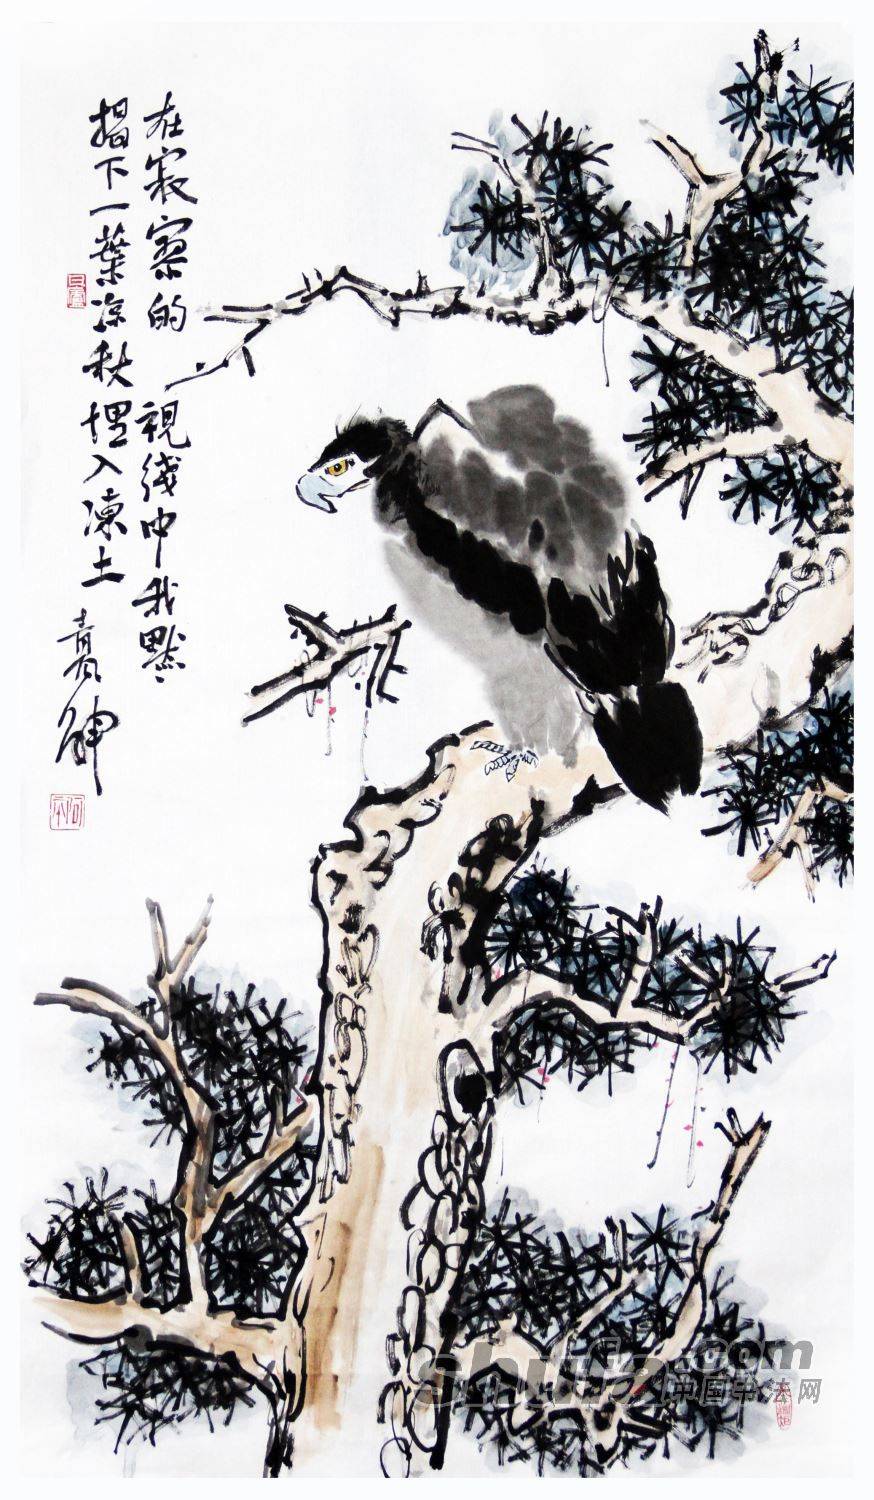 在寂寞的 視线中我默々
摺下一葉凉秋埋入凍土
shufa.com
中国书法网